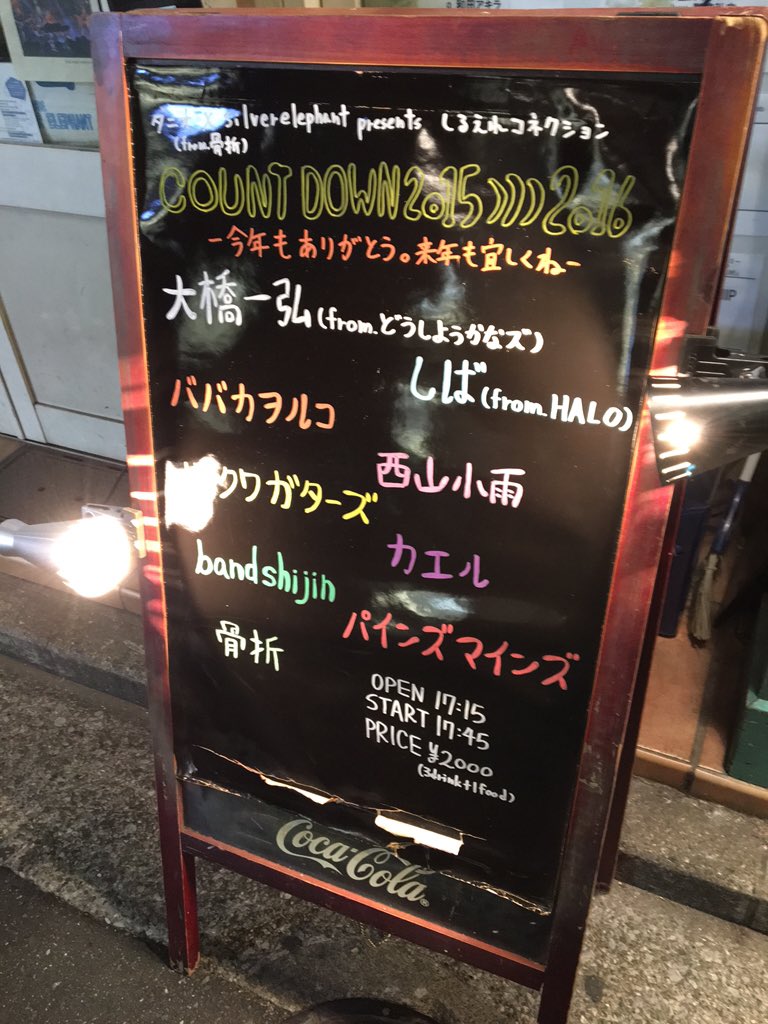 silverelephant presents しるえれコネクション
(from.骨折)
COUNT DOWN 2015 》》 2016
ー今年もありがとう。来年も宜しくねー
大橋一弘(from.どうしようかなズ)
しば(from.HALO)
ババカヲルコ
西山小雨
クワガターズ
カエル
bandshijin
パインズマインズ
骨折
OPEN 17:15
START 17:45
PRICE ¥2000
(3drink+1food)
Coca-Cola
ELEPHANT